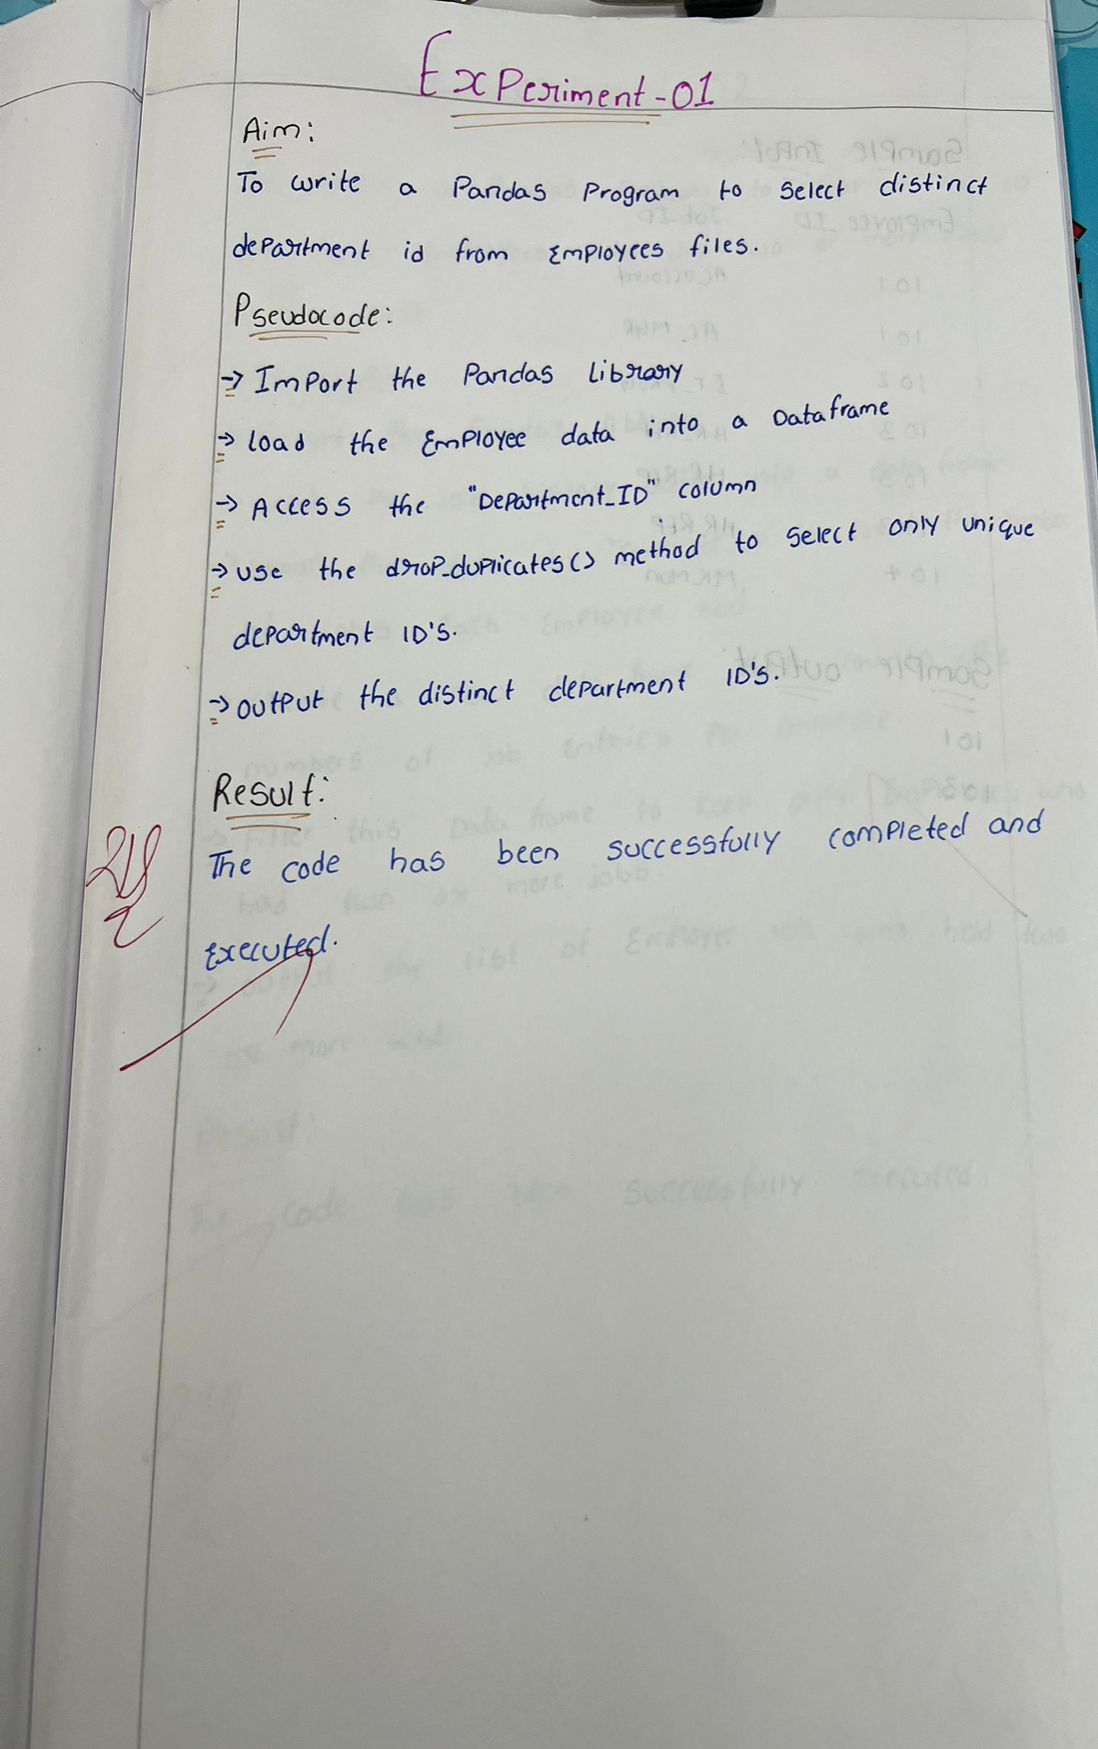 Experiment-01
Aim:
To write a Pandas Program to select distinct
department id from Employees files.
Pseudocode:
→ Import the Pandas Library
→ load the Employee data into a Dataframe
→ Access the "Department_ID" column
→ use the drop_duplicates() method to select only unique
department ID's.
→ output the distinct department ID's.
Result:
The code has been successfully completed and
Executed.